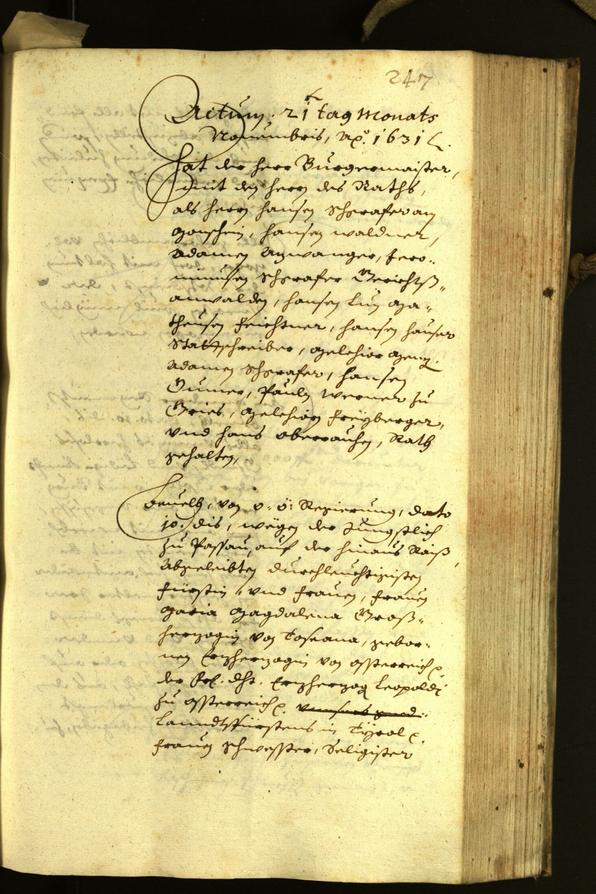 247
Actum. 21 tag Monats
Nouembris, Ao: 1631 L.
Hat der herr Burgermaister,
mit den hern des Raths,
als hern Hansen Schrafer am
Hansen Waldner,
Adamen Anwanger, Jero„
nimusen Schrafer Gerichts„
anwalden, Hansen Lun, Ma„
theusen Feichtner, Hansen Hauser
Stattschreiber, Melchior
Adamen Schrafer, Hansen
Gumer, Pauln Werner zu
Gries, Melchiorn Freyberger,
vnd Hans Oberrauhen, Rath
gehalten,
Beuelh, von o: ö: Regierung, dato
10. dis, wegen der Jungstlich
zu Passau, auf der hinaus Raiß
Abgeleibten durchleuchtigisten
Fürstin vnd Frauen, Frauen
Maria Magdalena Groß„
herzogin von Toscana, gebor„
nen Erzherzogin von Össterreich
der Frl. dht. Erzherzog Leopoldj
zu Össterreich
Lanndtsfürstens in Tyrol
Frauen Schwesster, Seligister